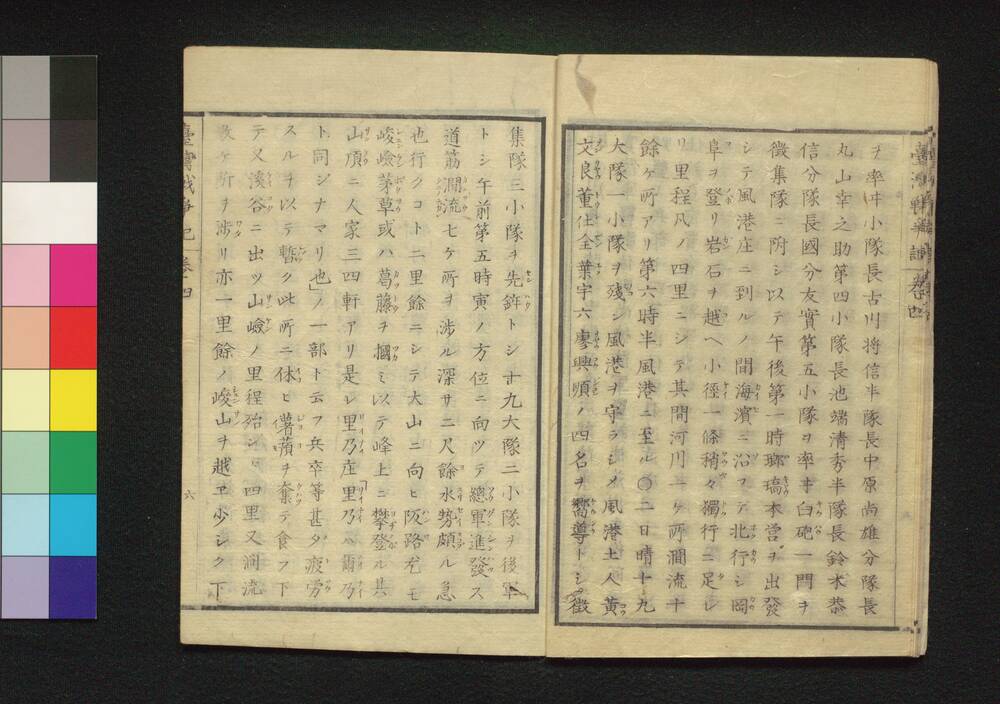 ヲ率ヰ小隊長古川将信半隊長中原尚雄分隊長
丸山幸之助第四小隊長池端清秀半隊長鈴木恭
信分隊長國分友實第五小隊ヲ率ヰ臼砲一門ヲ
徴集隊ニ附シ以テ午後第一時瑯𤩝本営ヲ出發
シテ風港庄ニ到ルノ間海濱ニ沿フテ北行シ岡
阜ヲ登リ岩石ヲ越ヘ小徑一條稍々獨行ニ足レ
リ里程凡ノ四里ニシテ其間河川二ケ所澗流十
餘ケ所アリ第六時半風港ニ至ル〇二日晴十九
大隊一小隊ヲ殘シ風港ヲ守ラシメ風港土人黄
文良董仕全葉字六廖興順ノ四名ヲ嚮導トシ徴
集隊三小隊ヲ先鋒トシ十九大隊二小隊ヲ後軍
トシ午前第五時寅ノ方位ニ向ツテ總軍進發ス
道筋澗流七ケ所ヲ渉ル深サ二尺餘水勢頗ル急
也行クコト二里餘ニシテ大山ニ向ヒ阪路尤モ
峻嶮茅草或ハ葛藤ヲ摑ミ以テ峰上ニ攀登ル其
山頂ニ人家三四軒アリ是レ里乃庄里乃ハ爾乃
ト同シナマリ也ノ一部ト云フ兵卒等甚タ疲労
スルヲ以テ暫ク此所ニ休ヒ薯蕷ヲ奪テ食フ下
テ又溪谷ニ出ツ山嶮ノ里程殆ント四里又澗流
数ケ所ヲ渉リ亦一里餘ノ峻山ヲ越ヱ少シク下
臺灣戰爭記 巻四
六